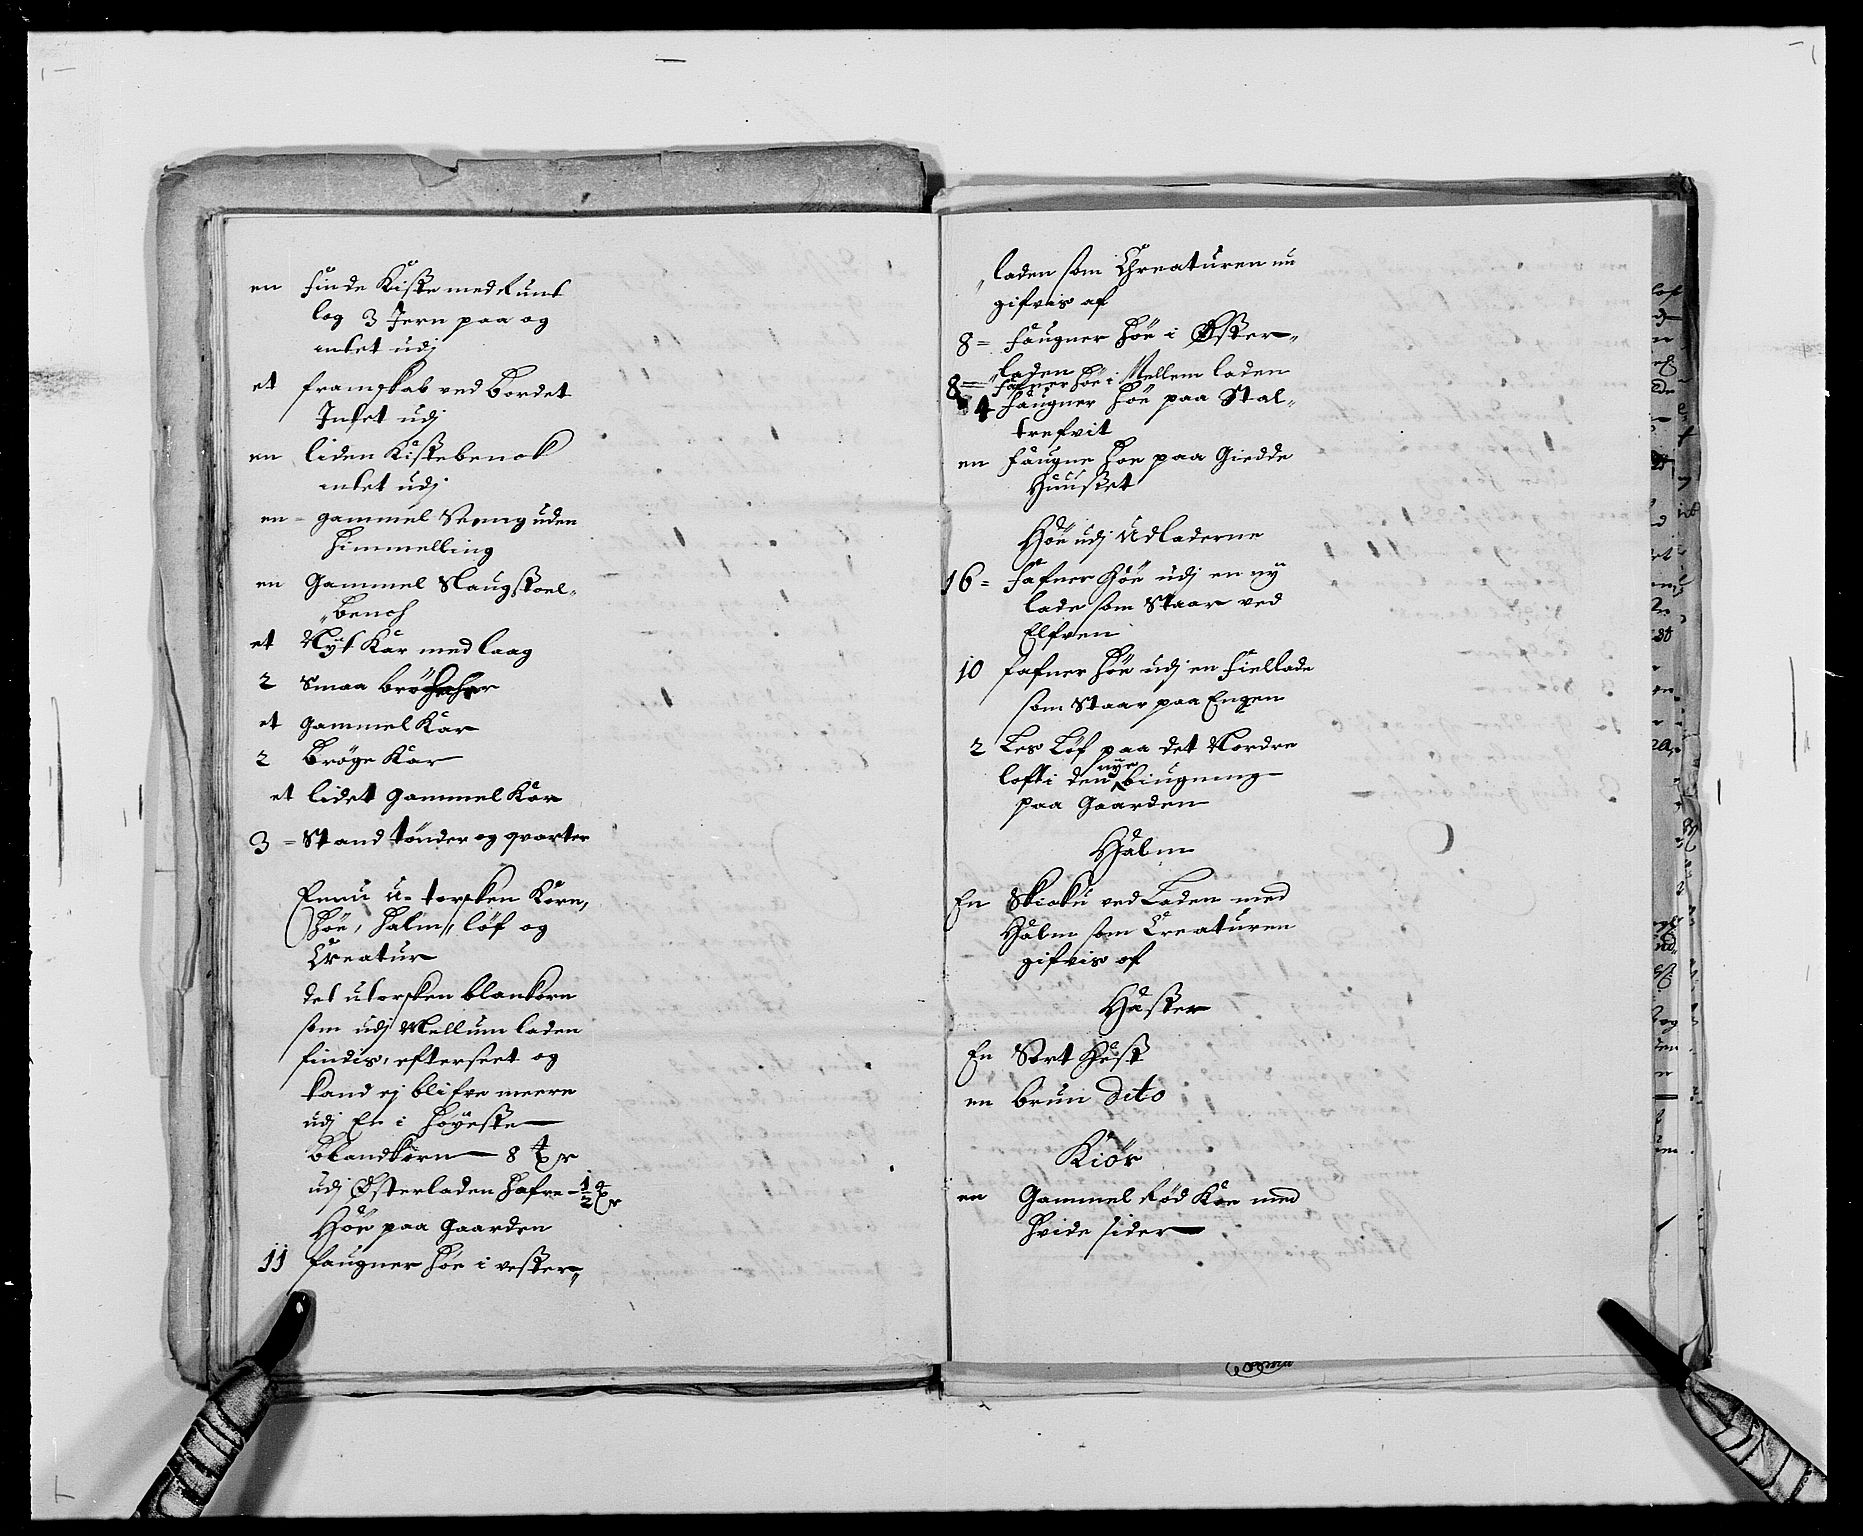 en finde Kiste med Rund
log 3 Jern paa og
intet udj
et framskab ved Bordet
Intet udj
en liden Kistebenck
intet udj
en = gammel Seong uden
himmelling
en Gammel Slaugstoel„
„Bench
et Nyt Kar med laag
2 Smaa
et Gammel Kar
2 Brøge Kar
et lidet Gammel Kar
3 = Stand tønder og qvarter
Ennu u-torsken Korn,
Høe, halm, løf og
Creatur
det utorsken blankorn
som udj Mellum laden
findis, efterseet og
kand ej blifve meere
udj En i høyeste
Blandkorn 8
udj Østerladen hafre - 1/2
Høe paa Gaarden
11 faugner høe i vester„
„laden som Chreaturen nu
gifvis af
8 = faugner høe i Øster„
„laden
8 = fafner høe i Mellem laden
4 faugner høe paa Stal„
trefvit
en faugne hoe paa Giedde
Huuset
Høe udj Udladerne
16 = fafner Høe udj en ny
lade som Staar ved
Elfven
10 fafner høe udj en fiellade
som Staar paa Engen
2 Les Løf paa det Nordre
loft i den nye biugning
paa Gaarden
Halm
En Skioku ved Laden med
Halm som Creaturen
gifvis af
Hæster
En Sort Hest
en brun Dito
Kiør
en Gammel Rød Koe med
hvide sider